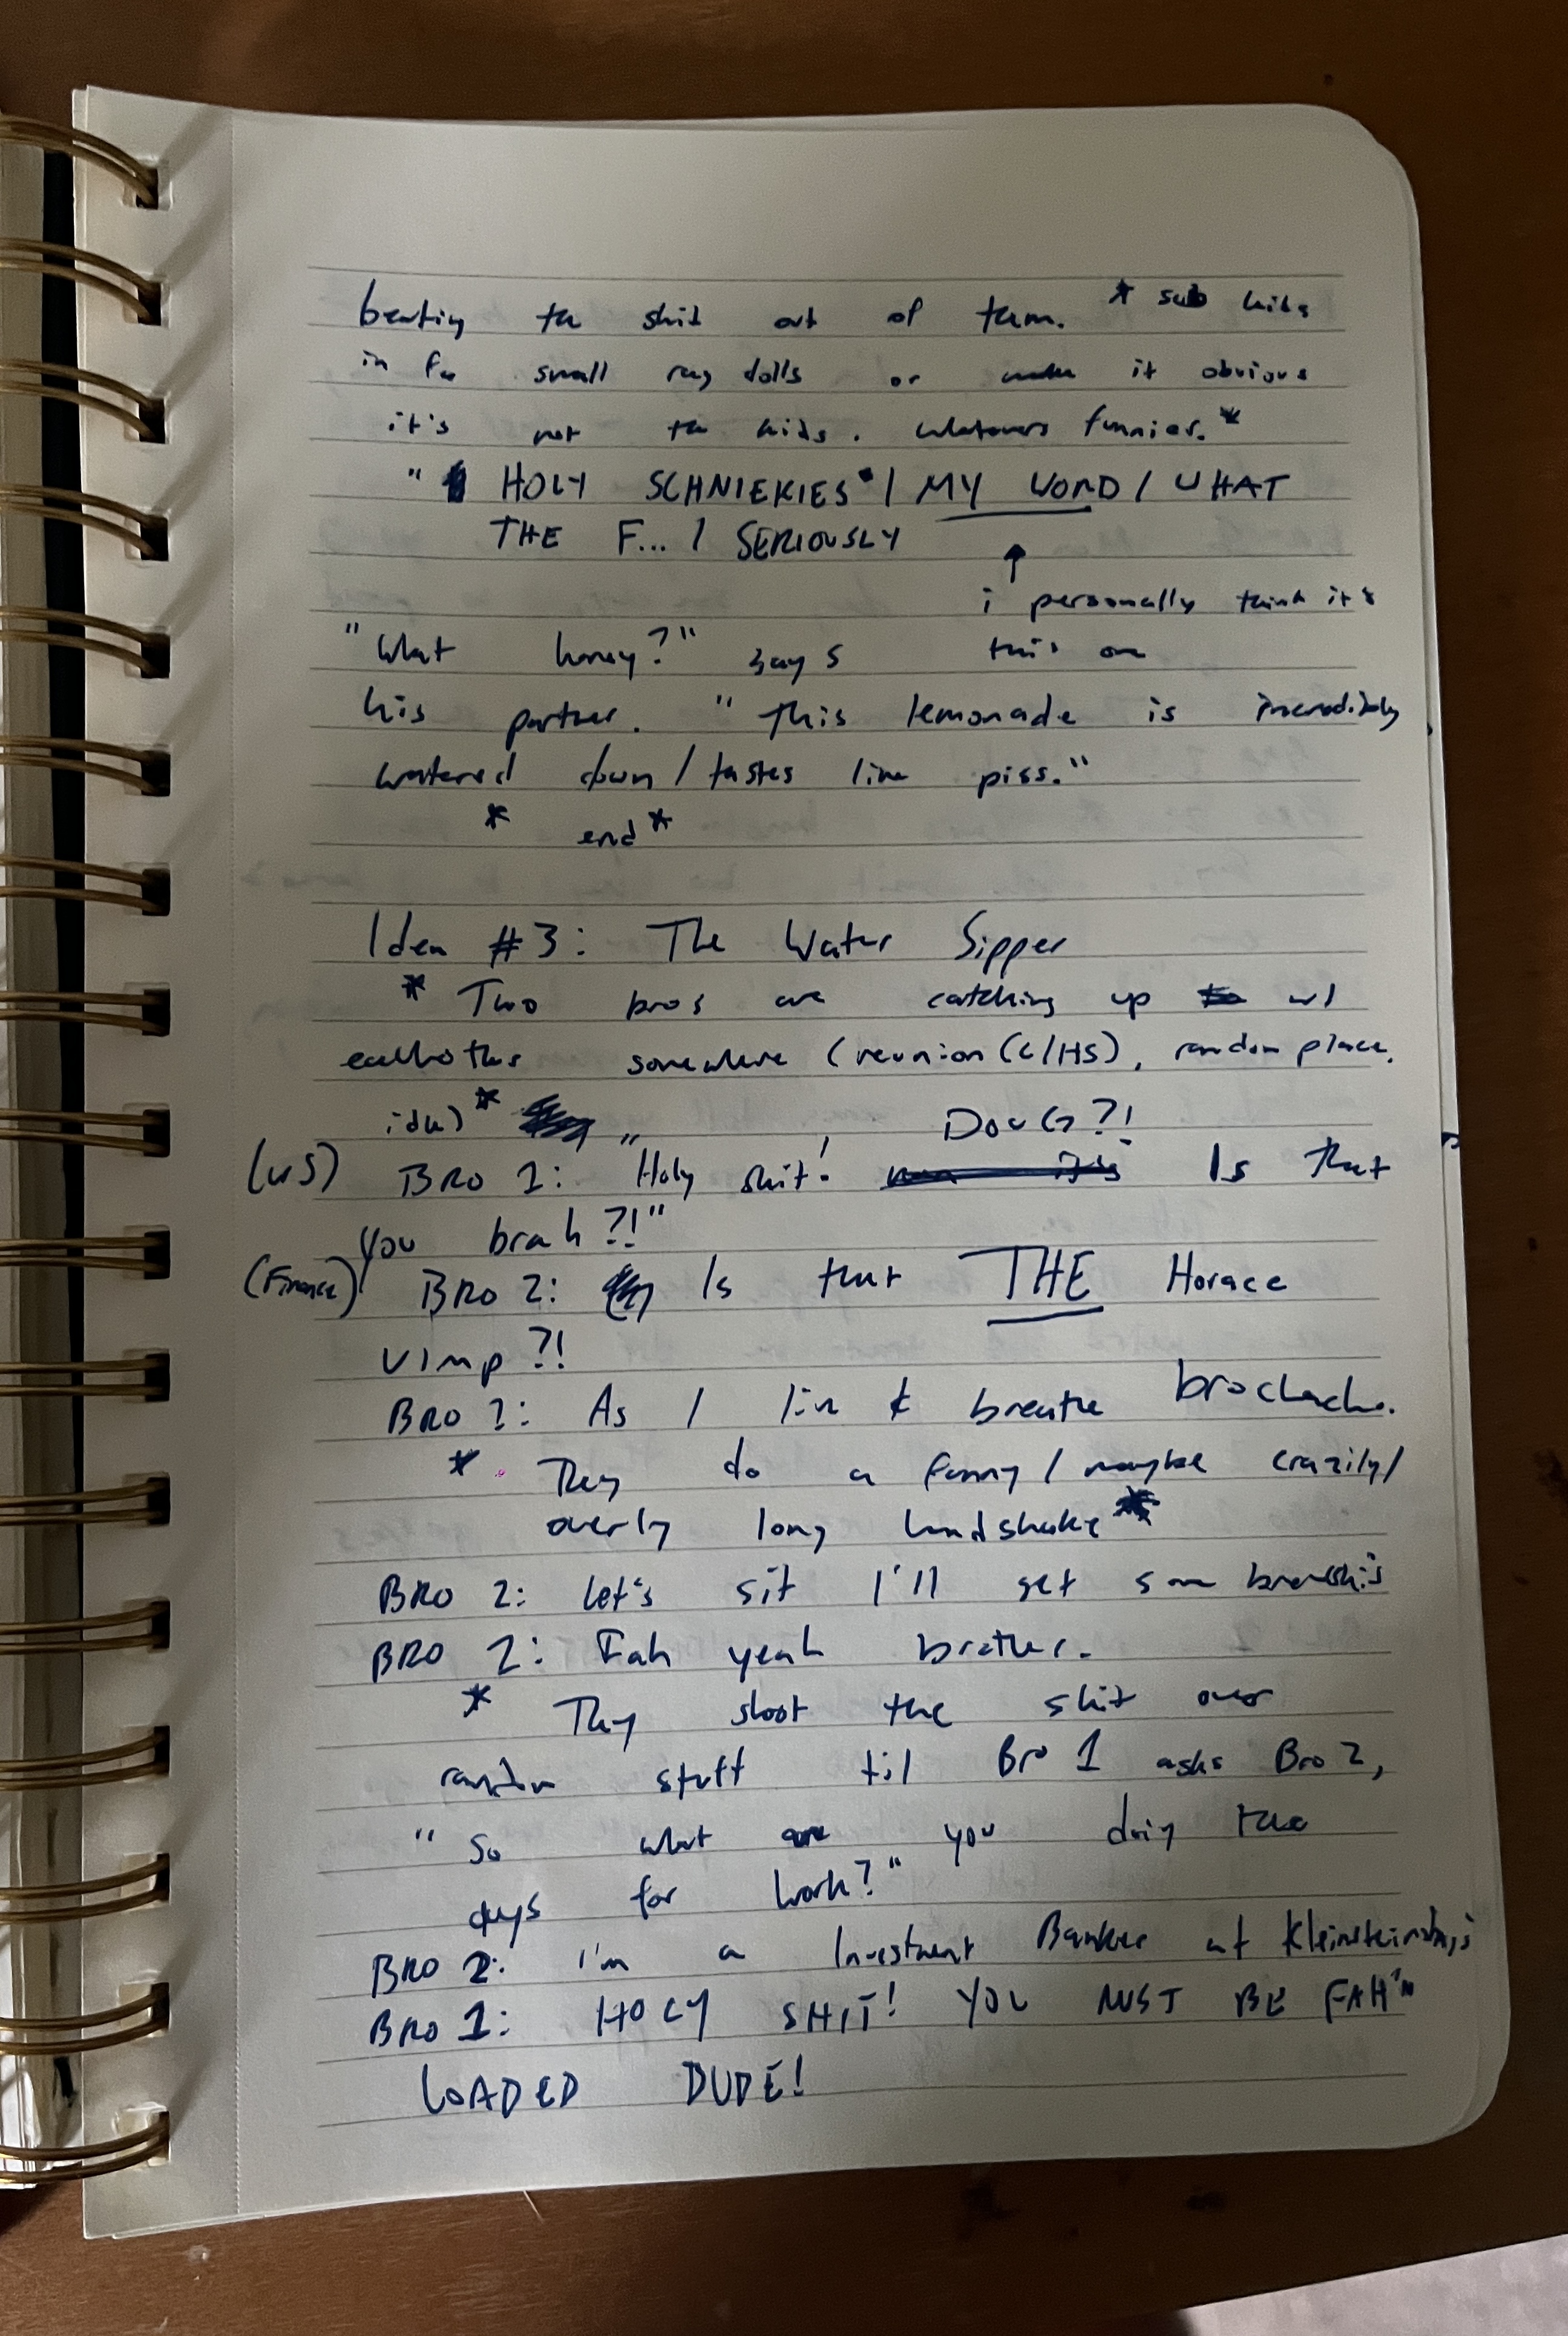 beating the shit out of them. * sub kids
in for small rag dolls or make it obvious
it's not the kids. whatevers funnier. *
" HOLY SCHNIEKIES / MY WORD / WHAT
THE F... / SERIOUSLY
↑
i personally think it's
this one
"What honey?" says
his partner. "This lemonade is incredibly
watered down / tastes like piss."
* end *
Idea #3: The Water Sipper
* Two bros are catching up w/
eachother somewhere (reunion (C/HS), random place,
idk) *
DOUG?!
(WS) BRO 1: "Holy shit! Is that
you brah?!"
(Finance) BRO 2: Is that THE Horace
Vimp?!
BRO 1: As I live & breathe brochacho.
* They do a funny / maybe crazily /
overly long handshake *
BRO 2: Let's sit I'll get some brewski's
BRO 1: Fah yeah brother.
* They shoot the shit over
random stuff til Bro 1 asks Bro 2,
" So what are you doing these
days for work?"
BRO 2: I'm a Investment Banker at
BRO 1: HOLY SHIT! YOU MUST BE FAH'N
LOADED DUDE!